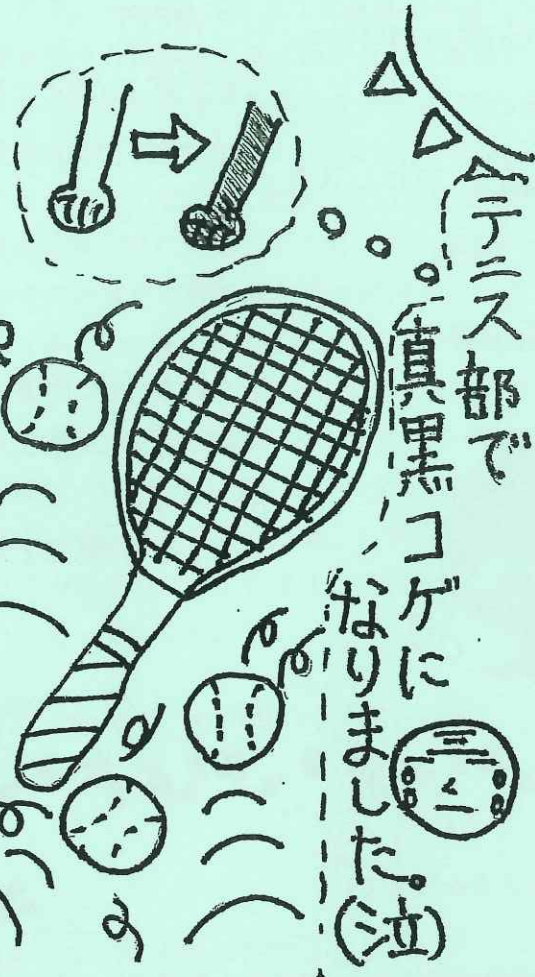 テニス部で
真黒コゲに
なりました。(泣)